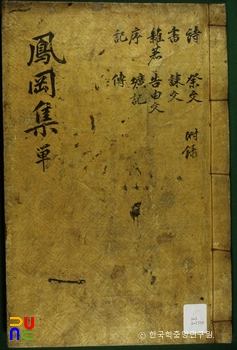 詩 祭文 附錄
書 誄文
雜著 告由文
序 壙記
記 傳
鳳岡集 單
ⓒ 한국학중앙연구원